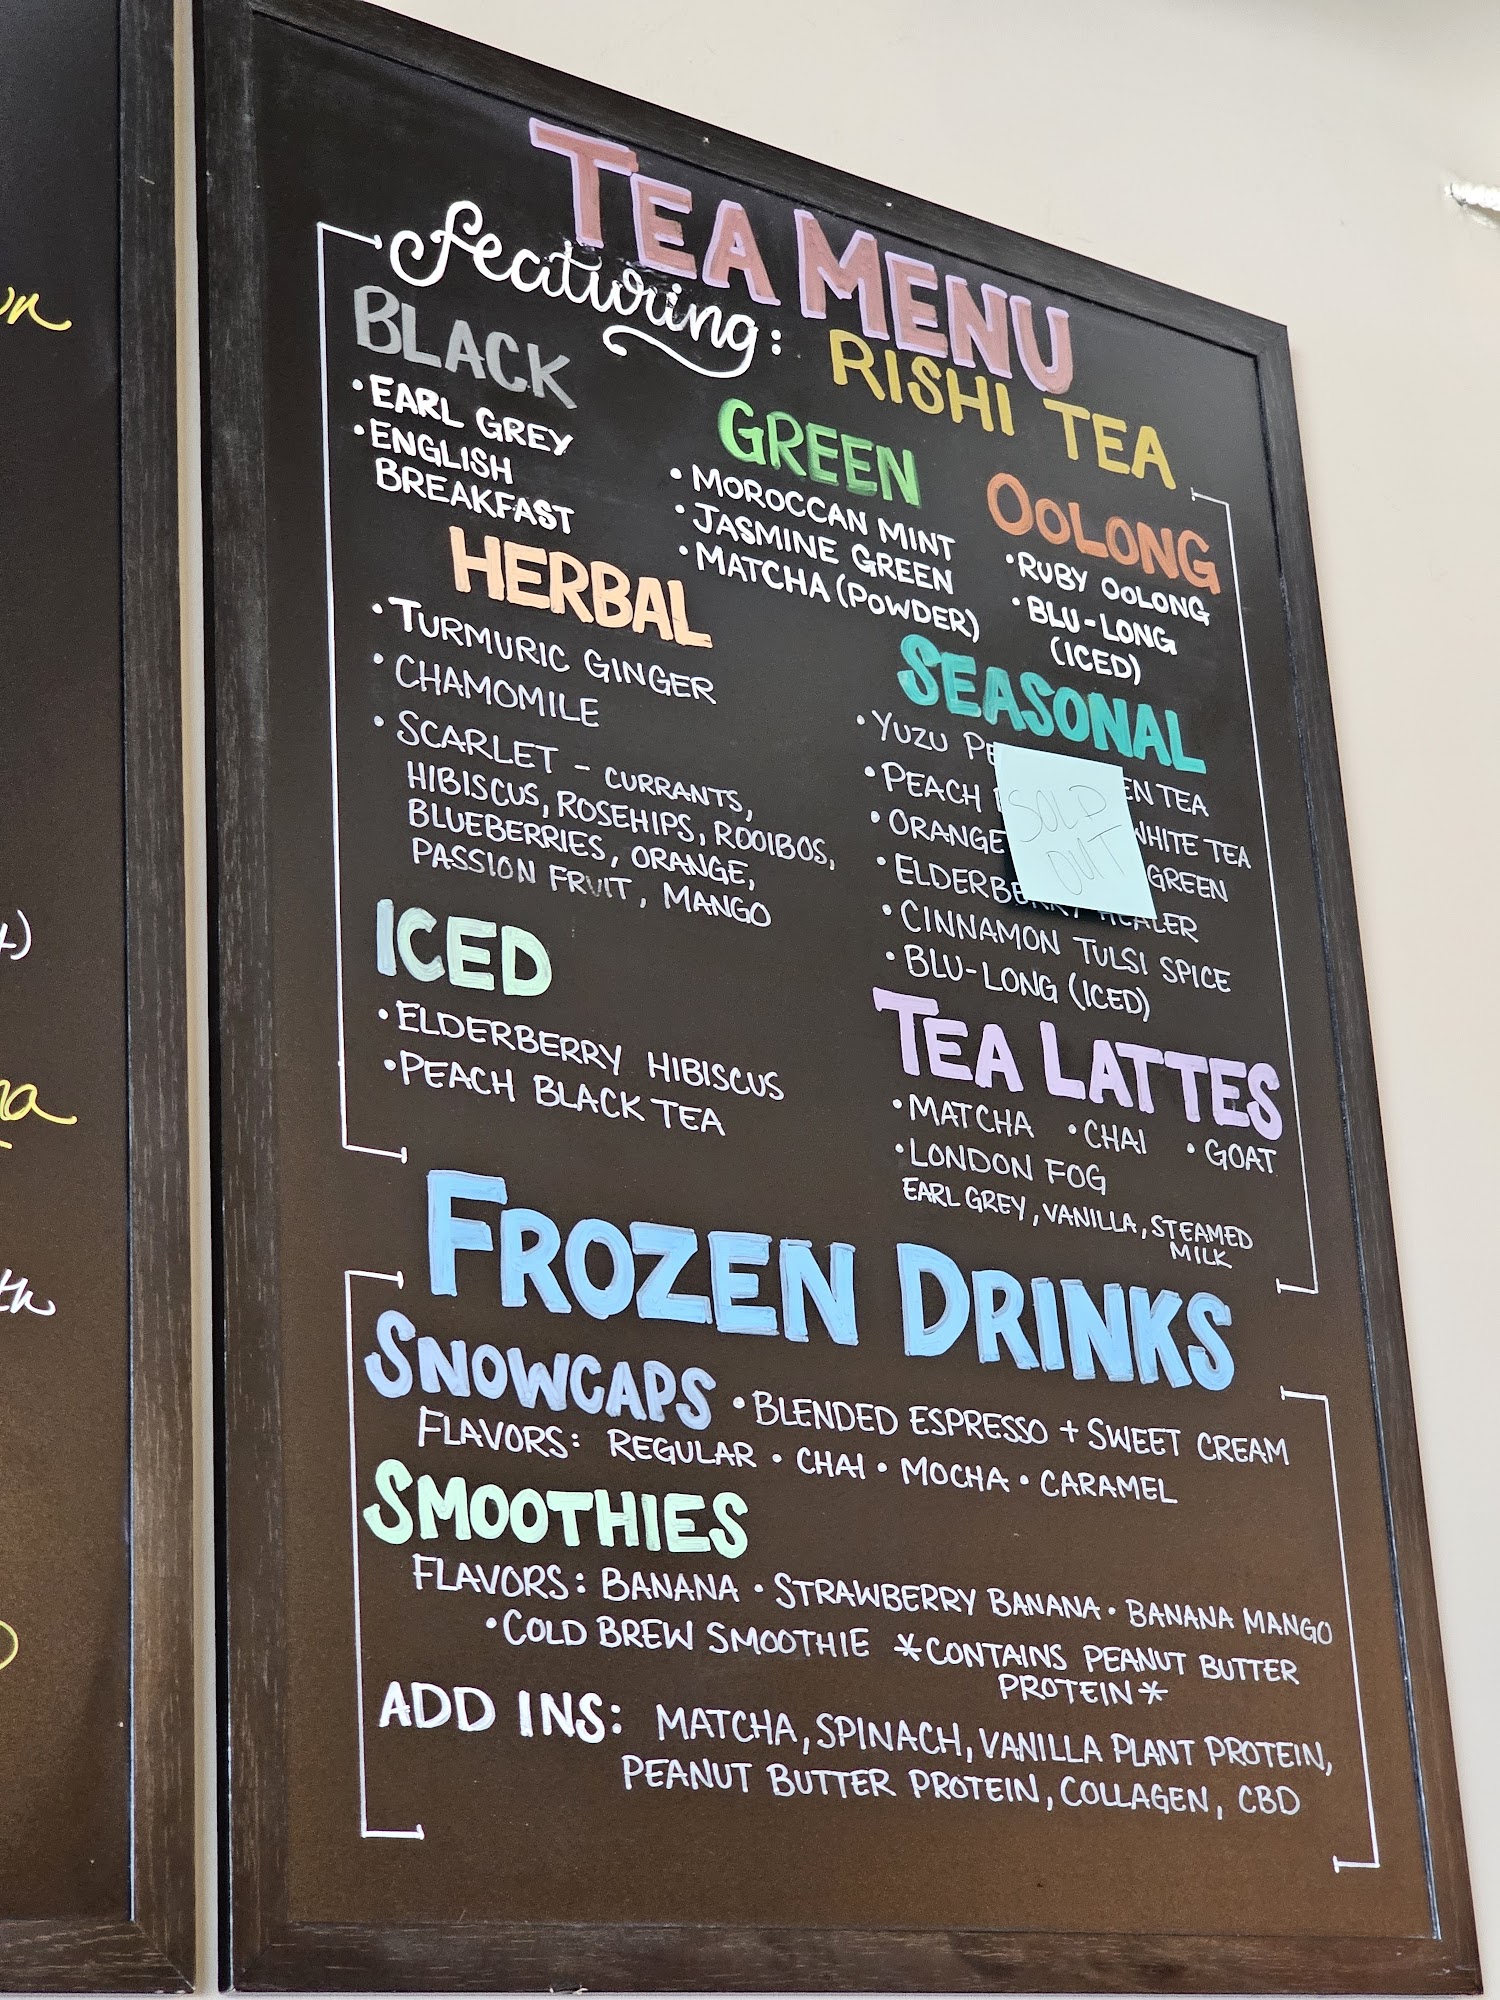 TEA MENU
featuring: RISHI TEA
BLACK
• EARL GREY
• ENGLISH
BREAKFAST
GREEN
• MOROCCAN MINT
• JASMINE GREEN
• MATCHA (POWDER)
OOLONG
• RUBY OOLONG
• BLU-LONG
(ICED)
HERBAL
• TURMURIC GINGER
• CHAMOMILE
• SCARLET - CURRANTS,
HIBISCUS, ROSEHIPS, ROOIBOS,
BLUEBERRIES, ORANGE,
PASSION FRUIT, MANGO
SEASONAL
• YUZU TEA
• PEACH WHITE TEA
• ORANGE GREEN
• ELDERBERRY HEALER
• CINNAMON TULSI SPICE
• BLU-LONG (ICED)
SOLD
OUT
ICED
• ELDERBERRY HIBISCUS
• PEACH BLACK TEA
TEA LATTES
• MATCHA • CHAI • GOAT
• LONDON FOG
EARL GREY, VANILLA, STEAMED
MILK
FROZEN DRINKS
SNOWCAPS • BLENDED ESPRESSO + SWEET CREAM
FLAVORS: REGULAR • CHAI • MOCHA • CARAMEL
SMOOTHIES
FLAVORS: BANANA • STRAWBERRY BANANA • BANANA MANGO
• COLD BREW SMOOTHIE *CONTAINS PEANUT BUTTER
PROTEIN*
ADD INS: MATCHA, SPINACH, VANILLA PLANT PROTEIN,
PEANUT BUTTER PROTEIN, COLLAGEN, CBD